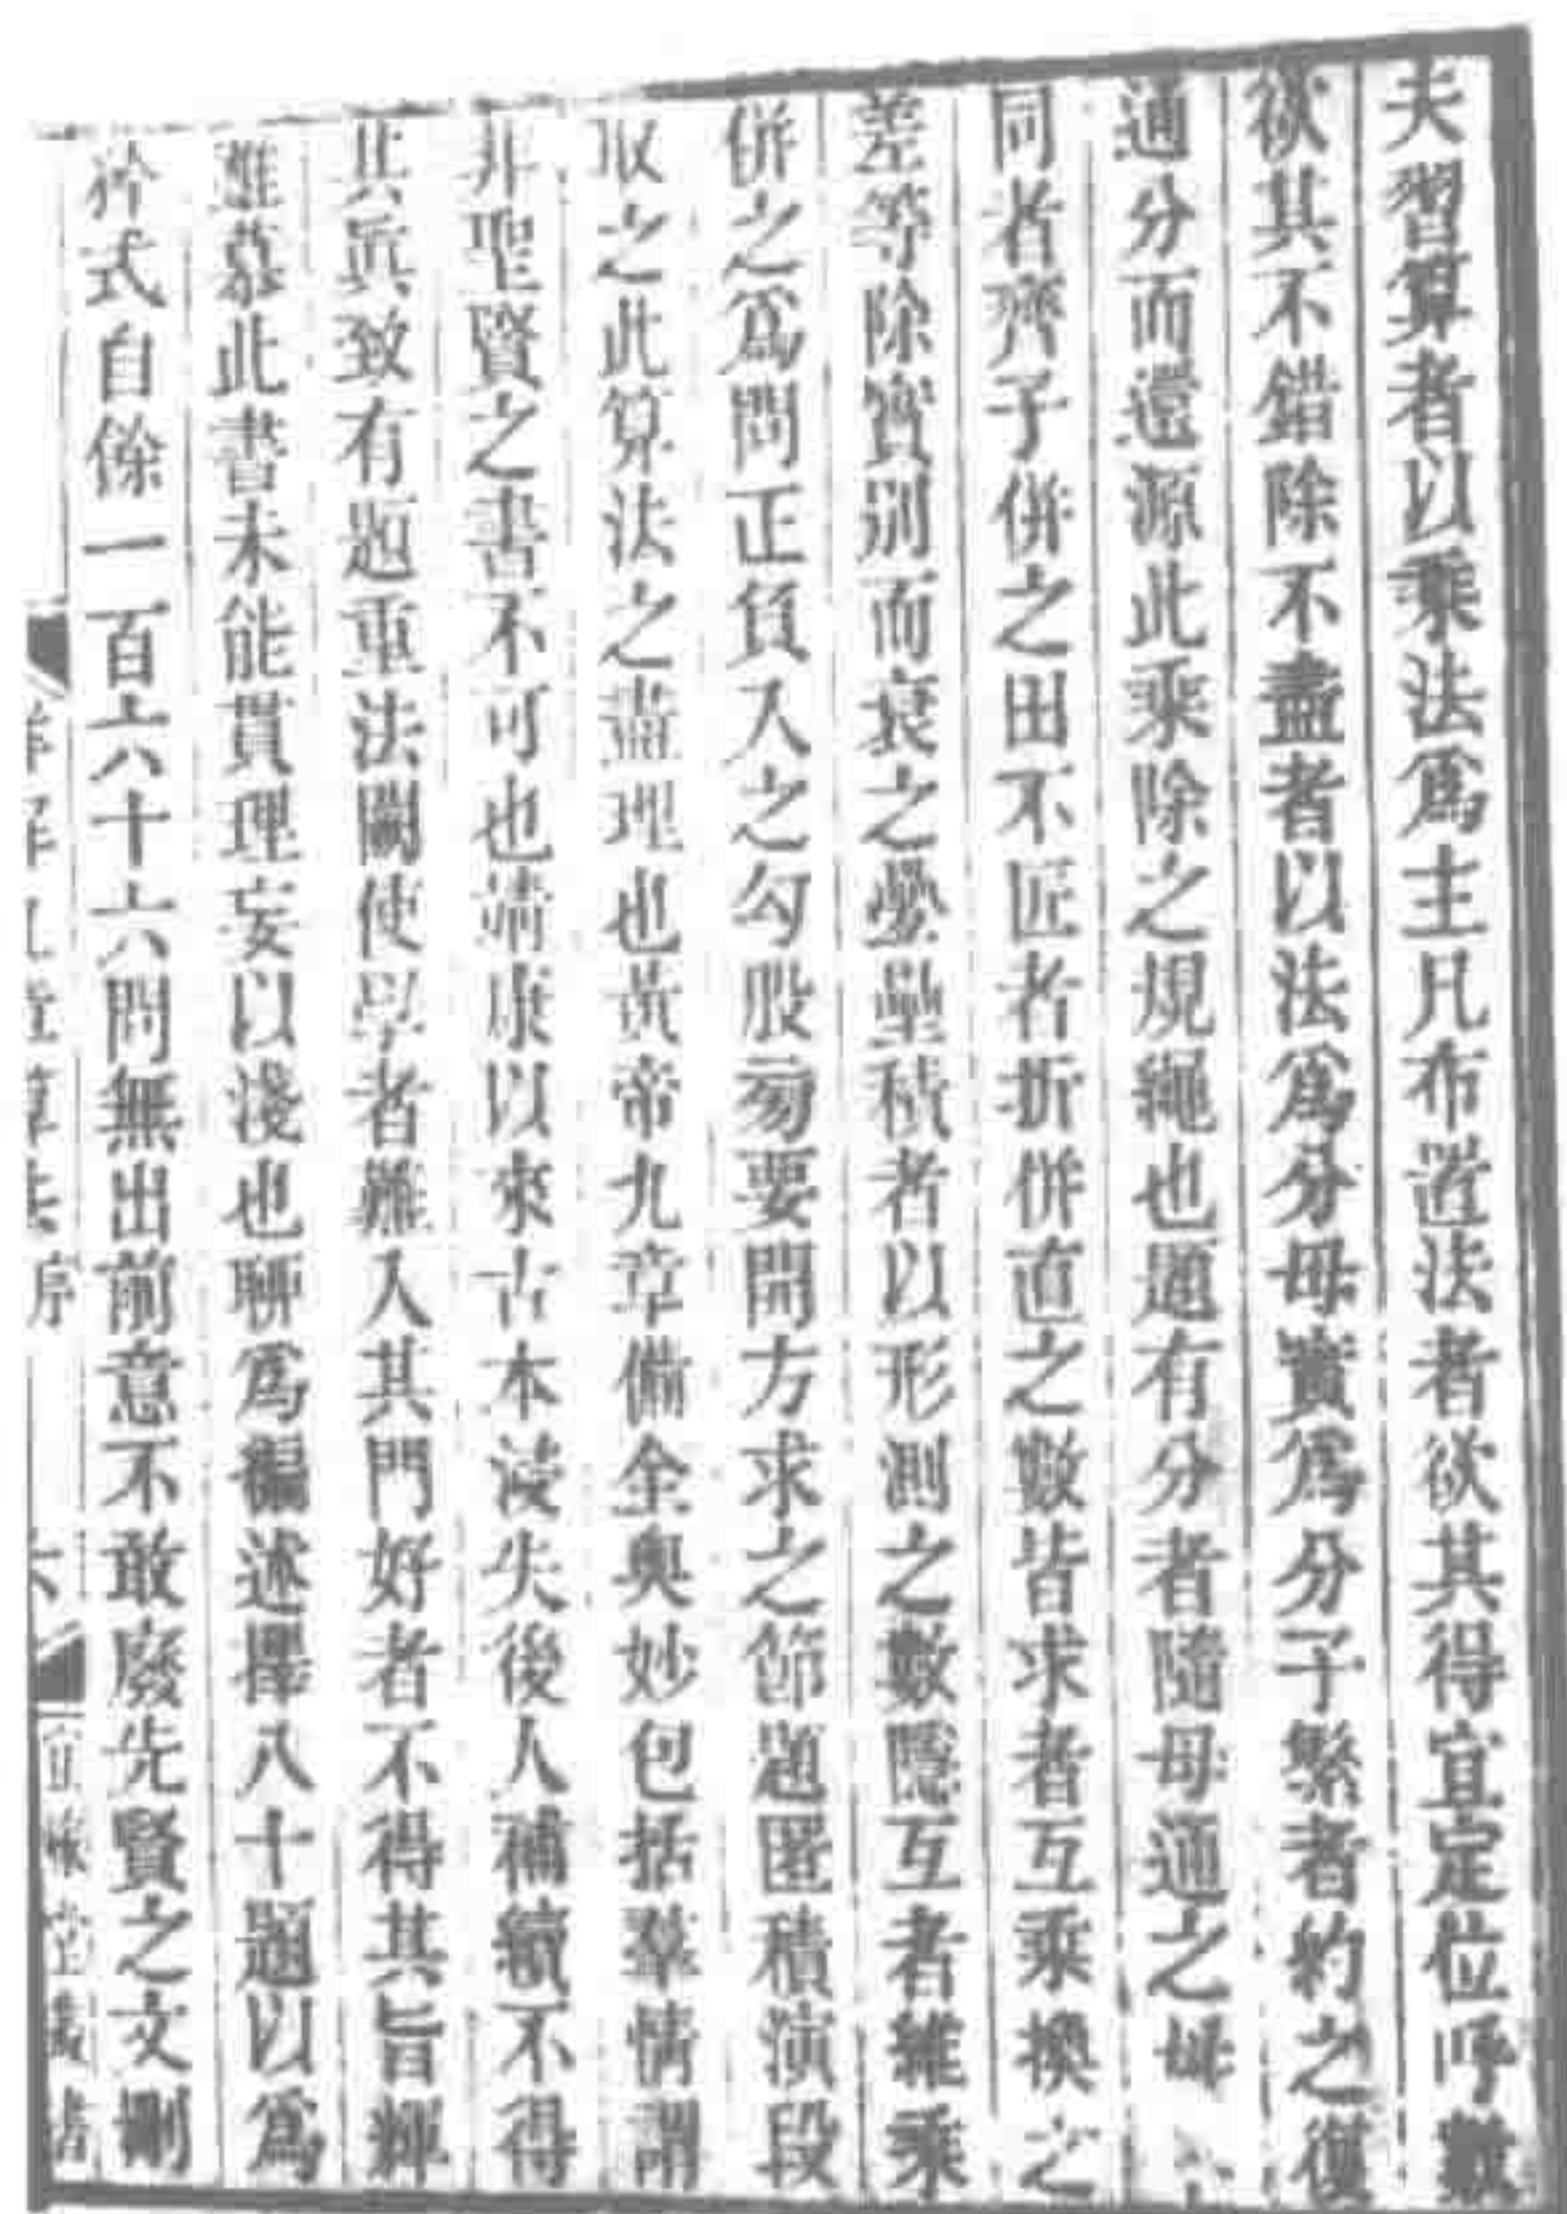 夫習算者以乘法爲主凡布置法者欲其得宜定位呼數
欲其不錯除不盡者以法爲分母實爲分子繁者約之復
通分而還源此乘除之規繩也題有分者隨母通之母不
同者齊子併之田不匠者折併直之數皆求者互乘換之
差等除實別而衰之壘積者以形測之數隱互者維乘
併之爲問正負入之勾股旁要開方求之節題匿積演段
取之此算法之盡理也黃帝九章備全奥妙包括羣情謂
非聖賢之書不可也靖康以來古本浸失後人補續不得
其眞致有題重法闕使學者難入其門好者不得其旨輝
雖慕此書未能貫理妄以淺也聊爲編述擇八十題以爲
矜式自餘一百六十六問無出前意不敢廢先賢之文刪
詳解九章算法序 六 宜稼堂叢書